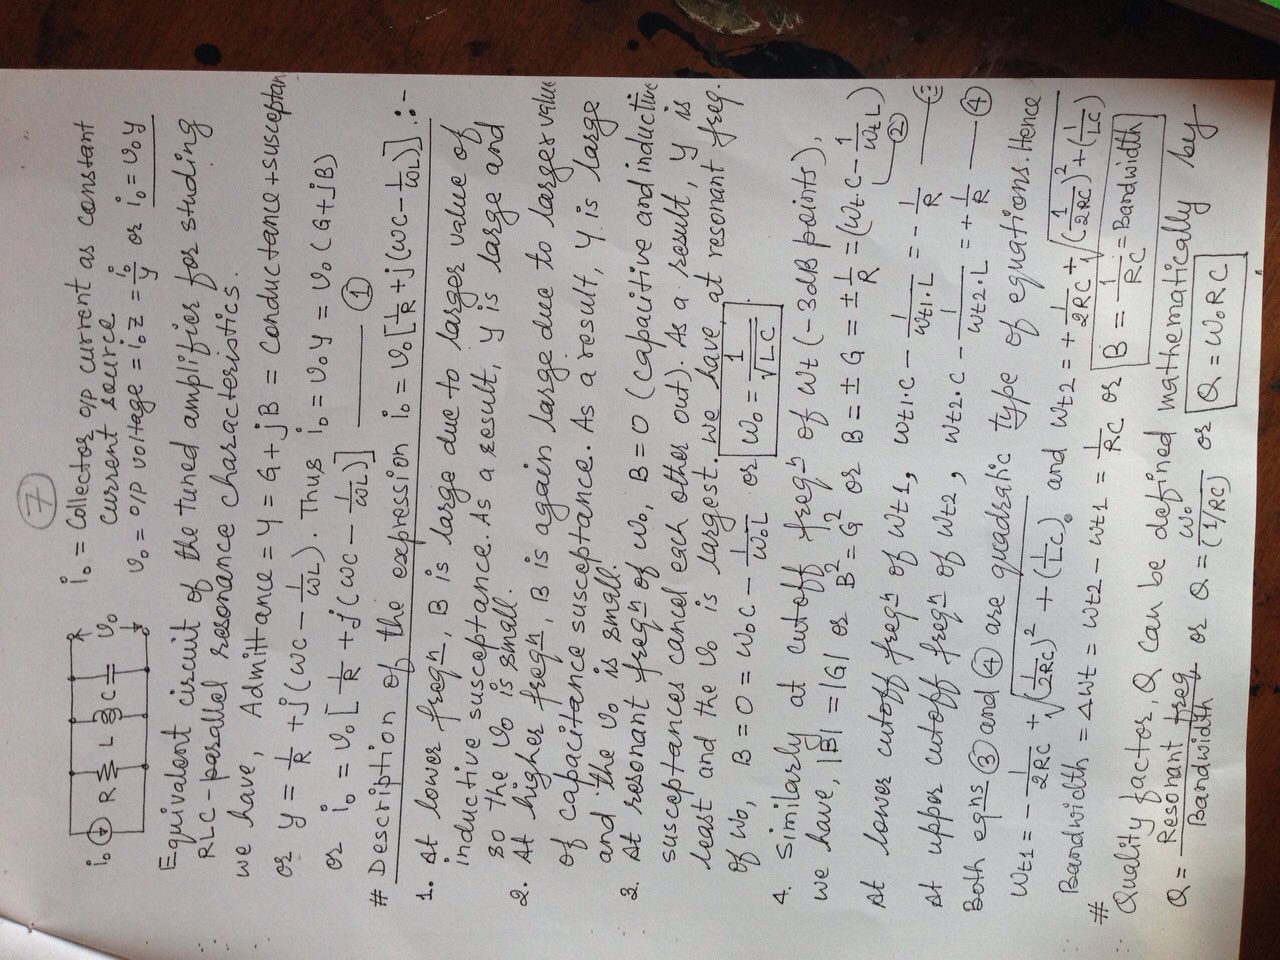 7
i₀ R L C v₀
i₀ = Collector o/p current as constant
current source
v₀ = o/p voltage = i₀z = i₀/Y or i₀ = v₀Y
Equivalent circuit of the tuned amplifier for studing
RLC-parallel resonance characteristics.
we have, Admittance = Y = G + jB = conductance + susceptan
or Y = 1/R + j(ωC − 1/ωL). Thus i₀ = v₀Y = v₀(G + jB)
or i₀ = v₀[1/R + j(ωC − 1/ωL)] —— ①
# Description of the expression i₀ = v₀[1/R + j(ωC − 1/ωL)] :-
1. At lower freqn, B is large due to larger value of
inductive susceptance. As a result, Y is large and
so the v₀ is small.
2. At higher freqn, B is again large due to larger value
of capacitance susceptance. As a result, Y is large
and the v₀ is small.
3. At resonant freqn of ω₀, B = 0 (capacitive and inductive
susceptances cancel each other out). As a result, Y is
least and the v₀ is largest. We have, at resonant freq.
of ω₀, B = 0 = ω₀C − 1/ω₀L or ω₀ = 1/√LC
4. Similarly at cutoff freqn of ωt (−3dB points),
we have, |B| = |G| or B² = G² or B = ± G = ± 1/R = (ωtC − 1/ωtL) ②
At lower cutoff freqn of ωt1, ωt1.C − 1/ωt1.L = − 1/R —— ③
At upper cutoff freqn of ωt2, ωt2.C − 1/ωt2.L = + 1/R —— ④
Both eqns ③ and ④ are quadratic type of equations. Hence
ωt1 = − 1/2RC + √(1/2RC)² + (1/LC). and ωt2 = + 1/2RC + √(1/2RC)² + (1/LC)
Bandwidth = Δωt = ωt2 − ωt1 = 1/RC or B = 1/RC = Bandwidth
# Quality factor, Q can be defined mathematically by
Q = Resonant freq/Bandwidth or Q = ω₀/(1/RC) or Q = ω₀RC